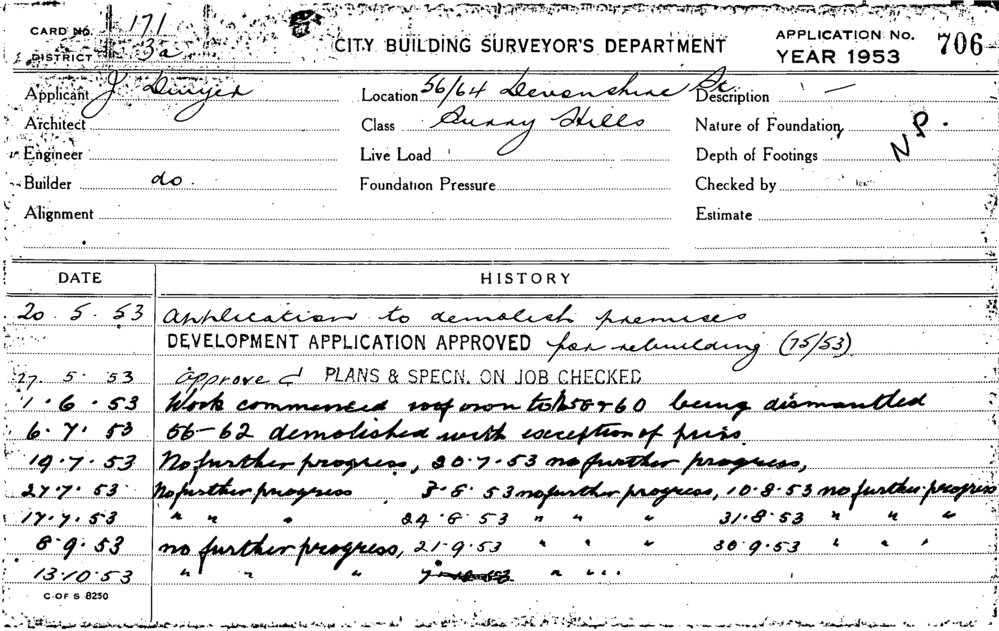 CARD No. 171
DISTRICT 3a
CITY BUILDING SURVEYOR'S DEPARTMENT
APPLICATION No.
YEAR 1953
706
Applicant J. Dwyer
Location 56/64 Devonshire St.
Description —
Architect
Class Surry Hills
Nature of Foundation N.P.
Engineer
Live Load
Depth of Footings
Builder do.
Foundation Pressure
Checked by
Alignment
Estimate
DATE HISTORY
20. 5. 53 Application to demolish premises
DEVELOPMENT APPLICATION APPROVED for rebuilding (75/53)
27. 5. 53 approved PLANS & SPECN. ON JOB CHECKED
1. 6. 53 Work commenced roof 58 & 60 being dismantled
6. 7. 53 56-62 demolished with exception of
19. 7. 53 No further progress, 20.7.53 no further progress,
27. 7. 53 No further progress 3. 8. 53 no further progress, 10.8.53 no further progress
17. 7. 53 " " " 24. 8. 53 " " " 31.8.53 " " "
8. 9. 53 no further progress, 21.9.53 " " " 30.9.53 " " "
13.10.53 " " " " " "
C. OF S 8250